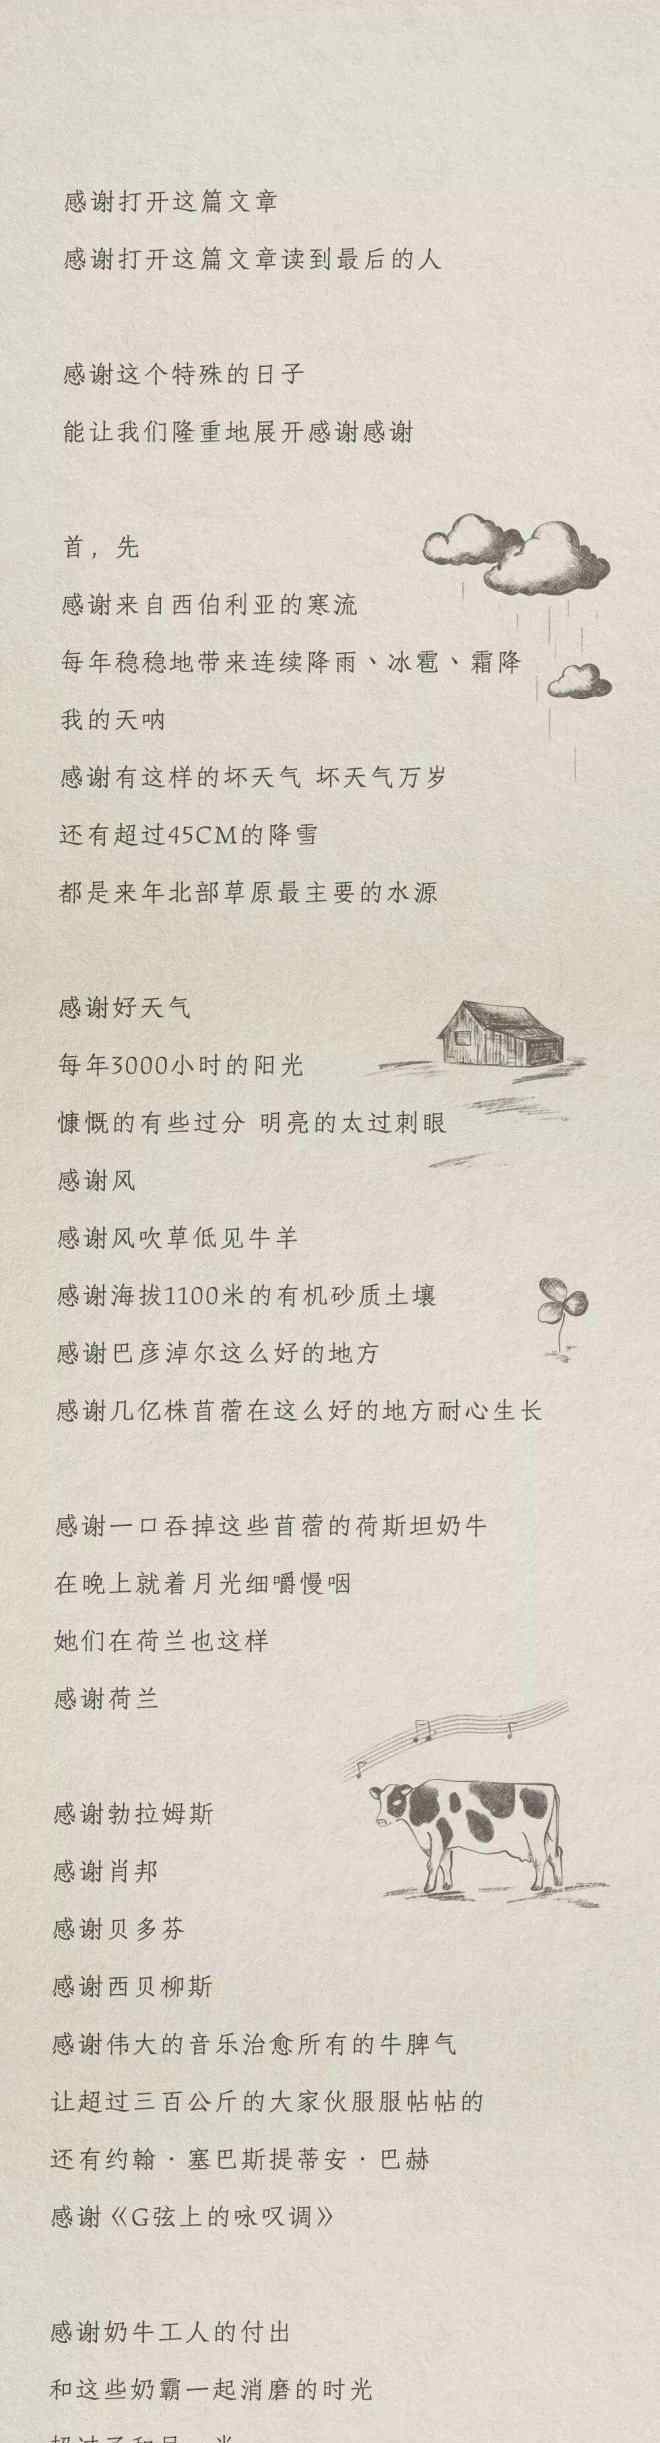 感谢打开这篇文章
感谢打开这篇文章读到最后的人
感谢这个特殊的日子
能让我们隆重地展开感谢感谢
首，先
感谢来自西伯利亚的寒流
每年稳稳地带来连续降雨、冰雹、霜降
我的天呐
感谢有这样的坏天气 坏天气万岁
还有超过45CM的降雪
都是来年北部草原最主要的水源
感谢好天气
每年3000小时的阳光
慷慨的有些过分 明亮的太过刺眼
感谢风
感谢风吹草低见牛羊
感谢海拔1100米的有机砂质土壤
感谢巴彦淖尔这么好的地方
感谢几亿株苜蓿在这么好的地方耐心生长
感谢一口吞掉这些苜蓿的荷斯坦奶牛
在晚上就着月光细嚼慢咽
她们在荷兰也这样
感谢荷兰
感谢勃拉姆斯
感谢肖邦
感谢贝多芬
感谢西贝柳斯
感谢伟大的音乐治愈所有的牛脾气
让超过三百公斤的大家伙服服帖帖的
还有约翰·塞巴斯提蒂安·巴赫
感谢《G弦上的咏叹调》
感谢奶牛工人的付出
和这些奶霸一起消磨的时光